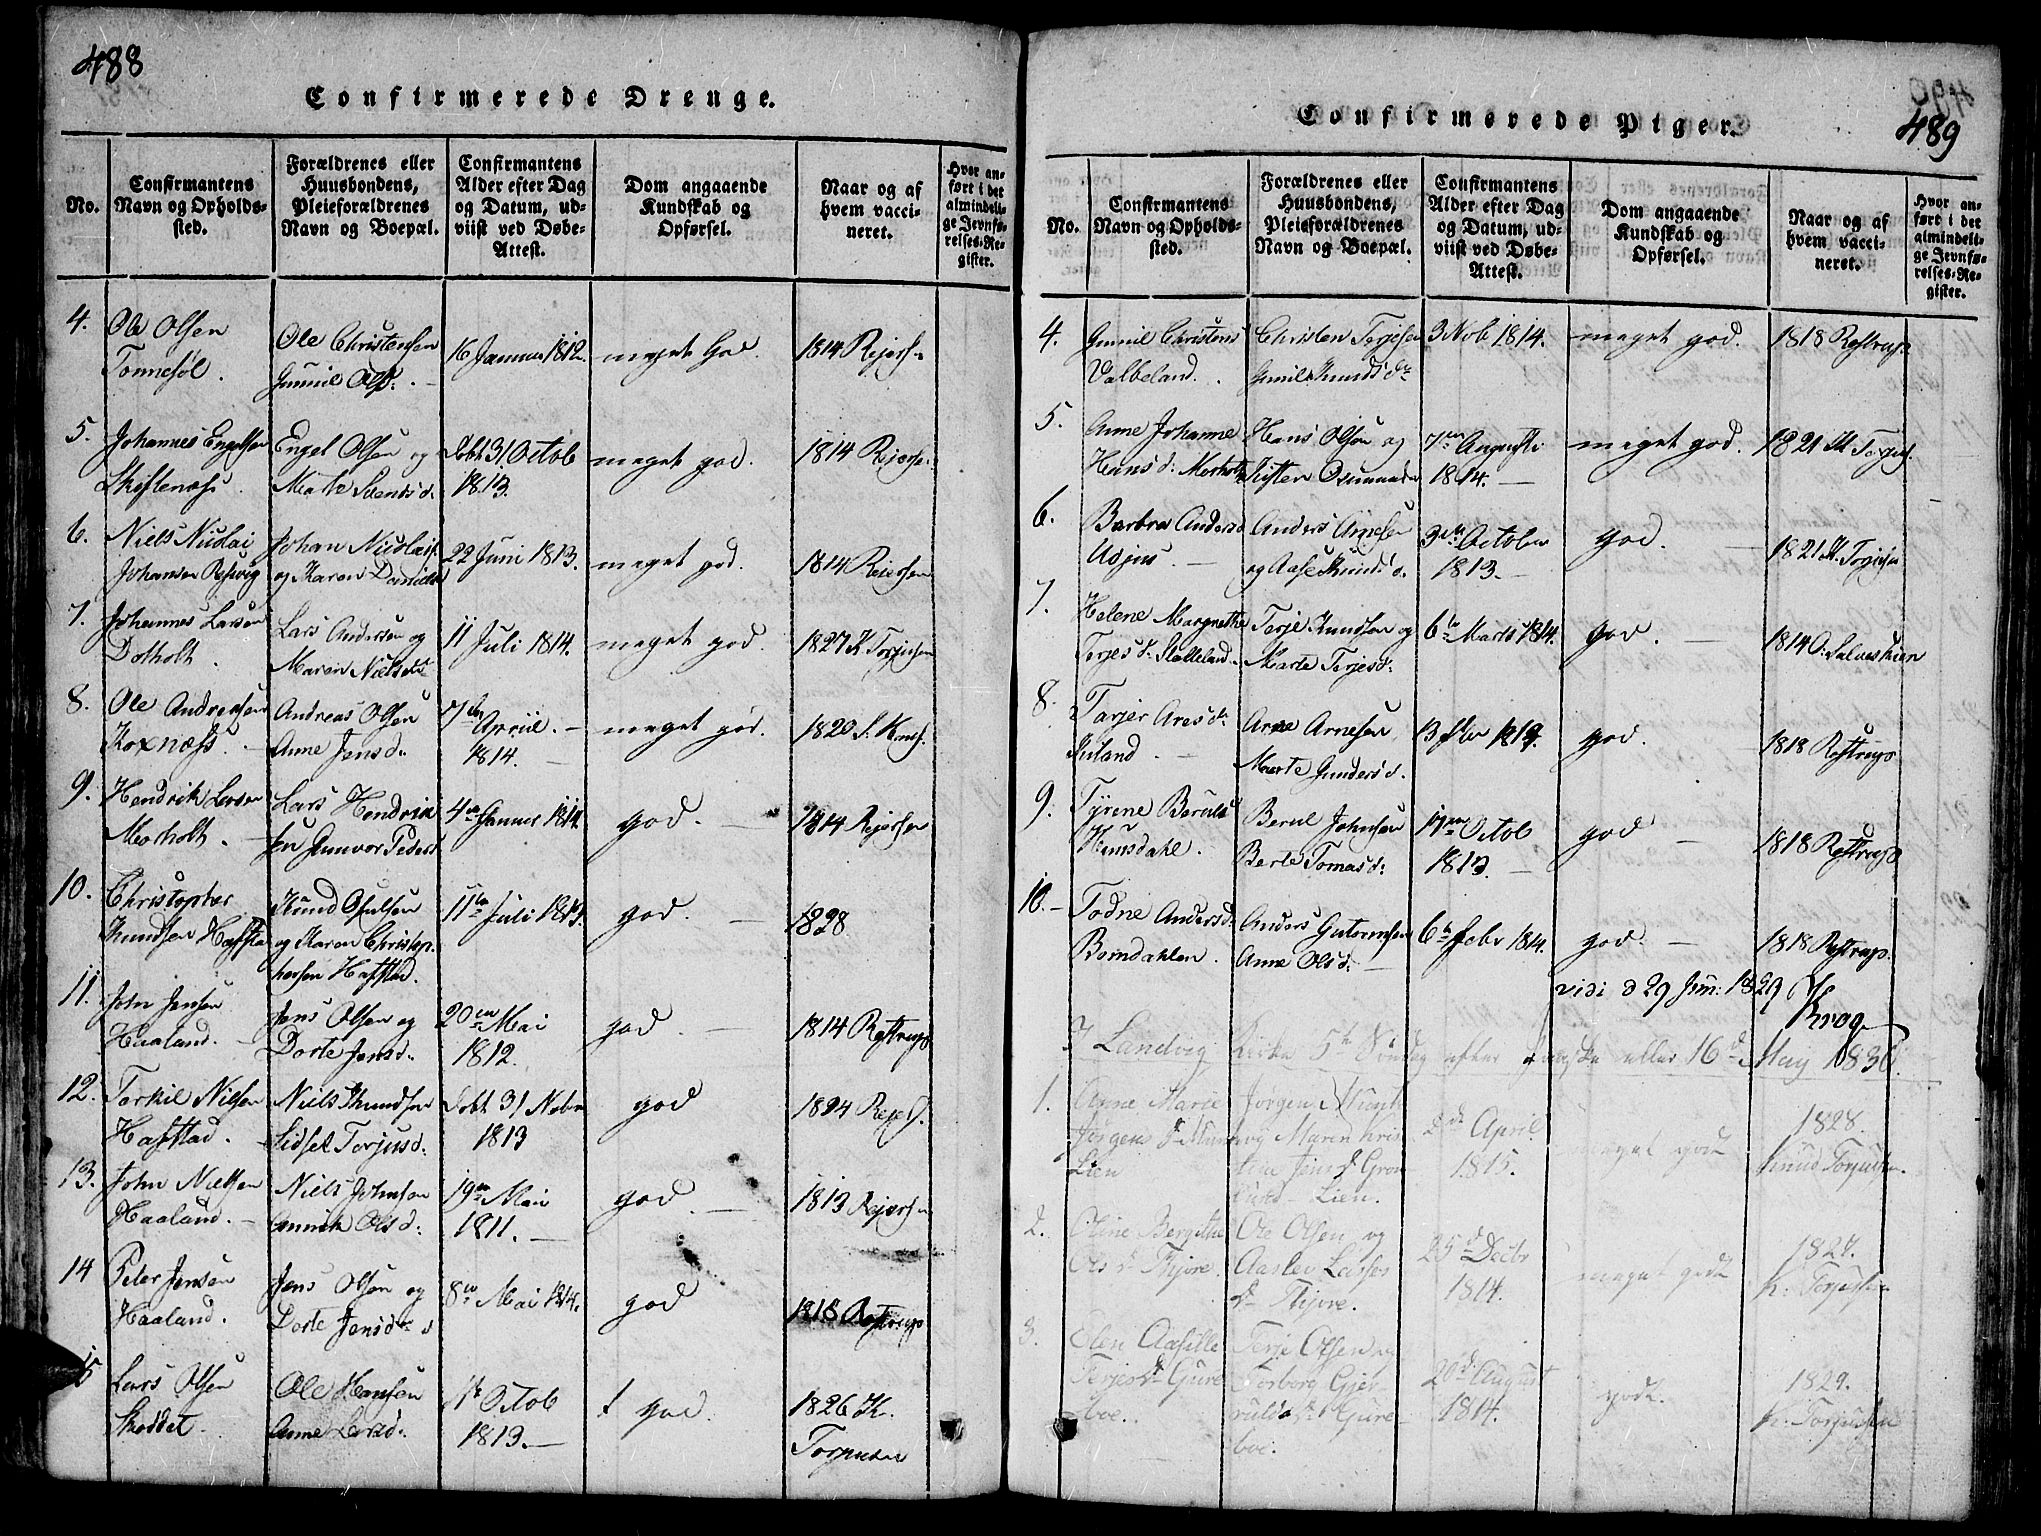 488
Confirmerede Drenge.
No.
Confirmantens
Navn og Opholds-
sted.
Forældrenes eller
Huusbondens,
Pleieforældrenes
Navn og Boepæl.
Confirmantens
Alder efter Dag
og Datum, ud-
viist ved Døbe-
Attest.
Dom angaaende
Kundskab og
Opførsel.
Naar og af
hvem vacci-
neret.
Hvor an-
ført i det
almindeli-
ge Jevnfø-
relses-Re-
gister.
4.
Ole Olsen
Tonnesöl.
Ole Christensen
Gunnil Ols
16 Januar 1812.
meget God.
1814 Rejersen
5.
Johannes Engelsen
Skiftenæs.
Engel Olsen og
Marte Svends d.
Døbt 31 Octob
1813.
meget god.
1814 Rejersen
6.
Niels Nicolai
Johansen Resvig
Johan Nicolais.
og Karen Daniels
22 Juni 1813.
meget god.
1814 Reiersen
7.
Johannes Larsen
Dolholt.
Lars Andersen og
Maren Nielsd.
11 Juli 1814.
meget god.
1827 K Torjusen
8.
Ole Andreasen
Roxnæss.
Andreas Olsen
Anne Jensd.
7de April.
1814.
meget god.
1820 S. Knus.
9.
Hendrik Larsen
Morholt.
Lars Hendrik
sen Gunvor Peders
4de Januar 1814
god.
1814 Rejersen
10.
Christopher
Knudsen Hafstad
Knud Opulsen
og Karen Christop
hersen Hafstad.
11te Juli 1814.
god.
1828
11.
John Jensen
Haaland.
Jens Olsen og
Dorte Jensd.
20en Mai
1812.
god.
1814 Restrup
12.
Torkil Nilsen
Hafstad.
Niels Knudsen
Sidsel Torjusd.
Døbt 31 Nobr
1813
god
1824 Rejes.
13.
John Nielsen
Haaland.
Niels Johnsen
Annich Olsd.
19de Mai
1811.
god.
1813 Rejersen
14
Peter Jensen
Haaland.
Jens Olsen og
Dorte Jensd.
8de Mai 1814.
god
1818 Restrup
15
Lars Olsen
Skoddet.
Ole Hansen
Anne Larsd.
1ste Octob
1813.
god.
1826 K.
Torjusen
489
Confirmerede Piger.
No.
Confirmantens
Navn og Opholds-
sted.
Forældrenes eller
Huusbondens,
Pleieforældrenes
Navn og Boepæl.
Confirmantens
Alder efter Dag
og Datum, ud-
viist ved Døbe-
Attest.
Dom angaaende
Kundskab og
Opførsel.
Naar og af
hvem vacci-
neret.
Hvor an-
ført i det
almindeli-
ge Jevnfø-
relses-Re-
gister.
4.
Gunnil Christens
Valbeland.
Christen Terjesen
Gunnil Knuds dr
3 Nob 1814.
meget god.
1818 Restrup
5.
Anne Johanne
Hans d. Morholt
Hans Olsen og
Kisten Osmunds
7de Augusti
1814.
meget god.
1821 K Torjus.
6.
Barbra Andersd
Anders Arnesen
og Aase Knuds d.
3die October
1813.
god.
1821 K. Torjusen
7.
Helene Margrethe
Terjes d. Stalleland
Terje Knudsen og
Marte Terjesd.
6te Marts 1814.
god.
1814 O: Salveskien
8.
Tarjer Ares d.
Arne Arnesen
Marte Gunders d.
god.
1818 Restrup
9.
Tyrene Beruls
Humsdahl.
Berul Johnsen
Berte Tomasd.
Octob
1813.
god
1818 Restrup
10.
Todne Andersd.
Borndahlen.
Anders Gutormsen
Anne Olsd.
6te Febr 1814.
god.
1818 Restrup.
vidi d 29 Jun: 1829 Krog
I Landvig Kirke 5te Søndag efter Paaske eller 16d May 1830.
1.
Anne Marie
Lien
Jørgen Munk
og Maren Kris
tine Jens d. Grøn
lund Lien.
2d April
1815.
meget godt
1828.
Knud Torjusen.
2.
Oline Bergithe
Ols d. Kjøre.
Ole Olsen og
Aaslev Lasses
d. Kjøre.
25d Decbr
1814.
meget godt
1827.
K. Torjusen
3.
Elen Aaselle
Terjes d. Gure
boe.
Terje Olsen og
Torborg Gjer
ulds d. Gure
boe.
20d August
1814.
godt.
1829.
K. Torjusen